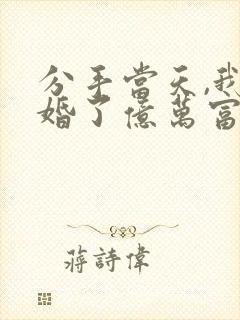 分手當天,我
婚了億萬富
蔣詩偉